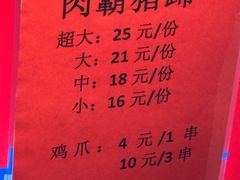 肉霸猪蹄
超大：25 元/份
大：21 元/份
中：18 元/份
小：16 元/份
鸡爪：4 元/1 串
10 元/3 串